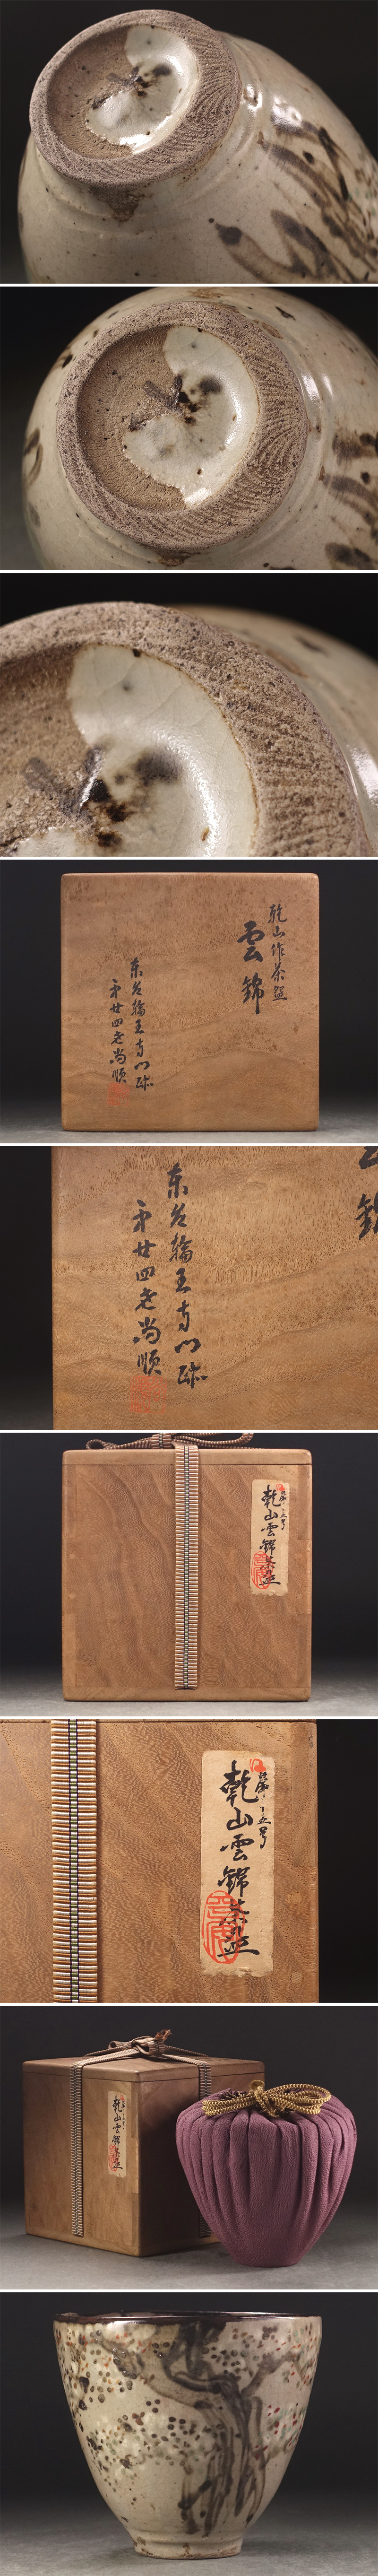 乾山作茶盌
雲錦
東叡輪王寺門跡
第廿四老尚順
東叡輪王寺門跡
第廿四老尚順
乾山雲錦茶盌
乾山雲錦茶盌
乾山雲錦茶盌